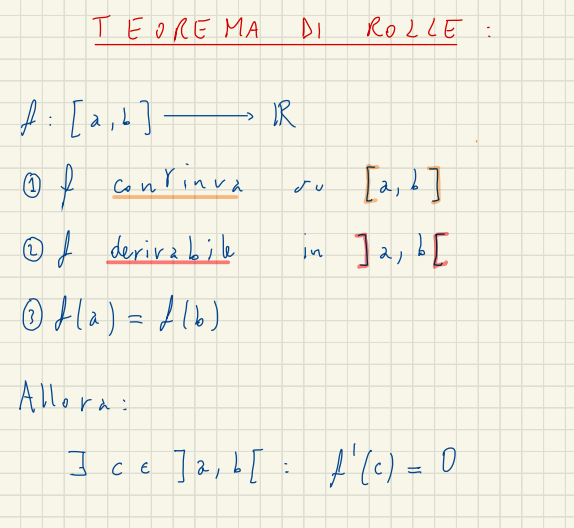 TEOREMA DI ROLLE :
f : [a, b] ⟶ ℝ
① f continua su [a, b]
② f derivabile in ]a, b[
③ f(a) = f(b)
Allora :
∃ c ∈ ]a, b[ : f'(c) = 0